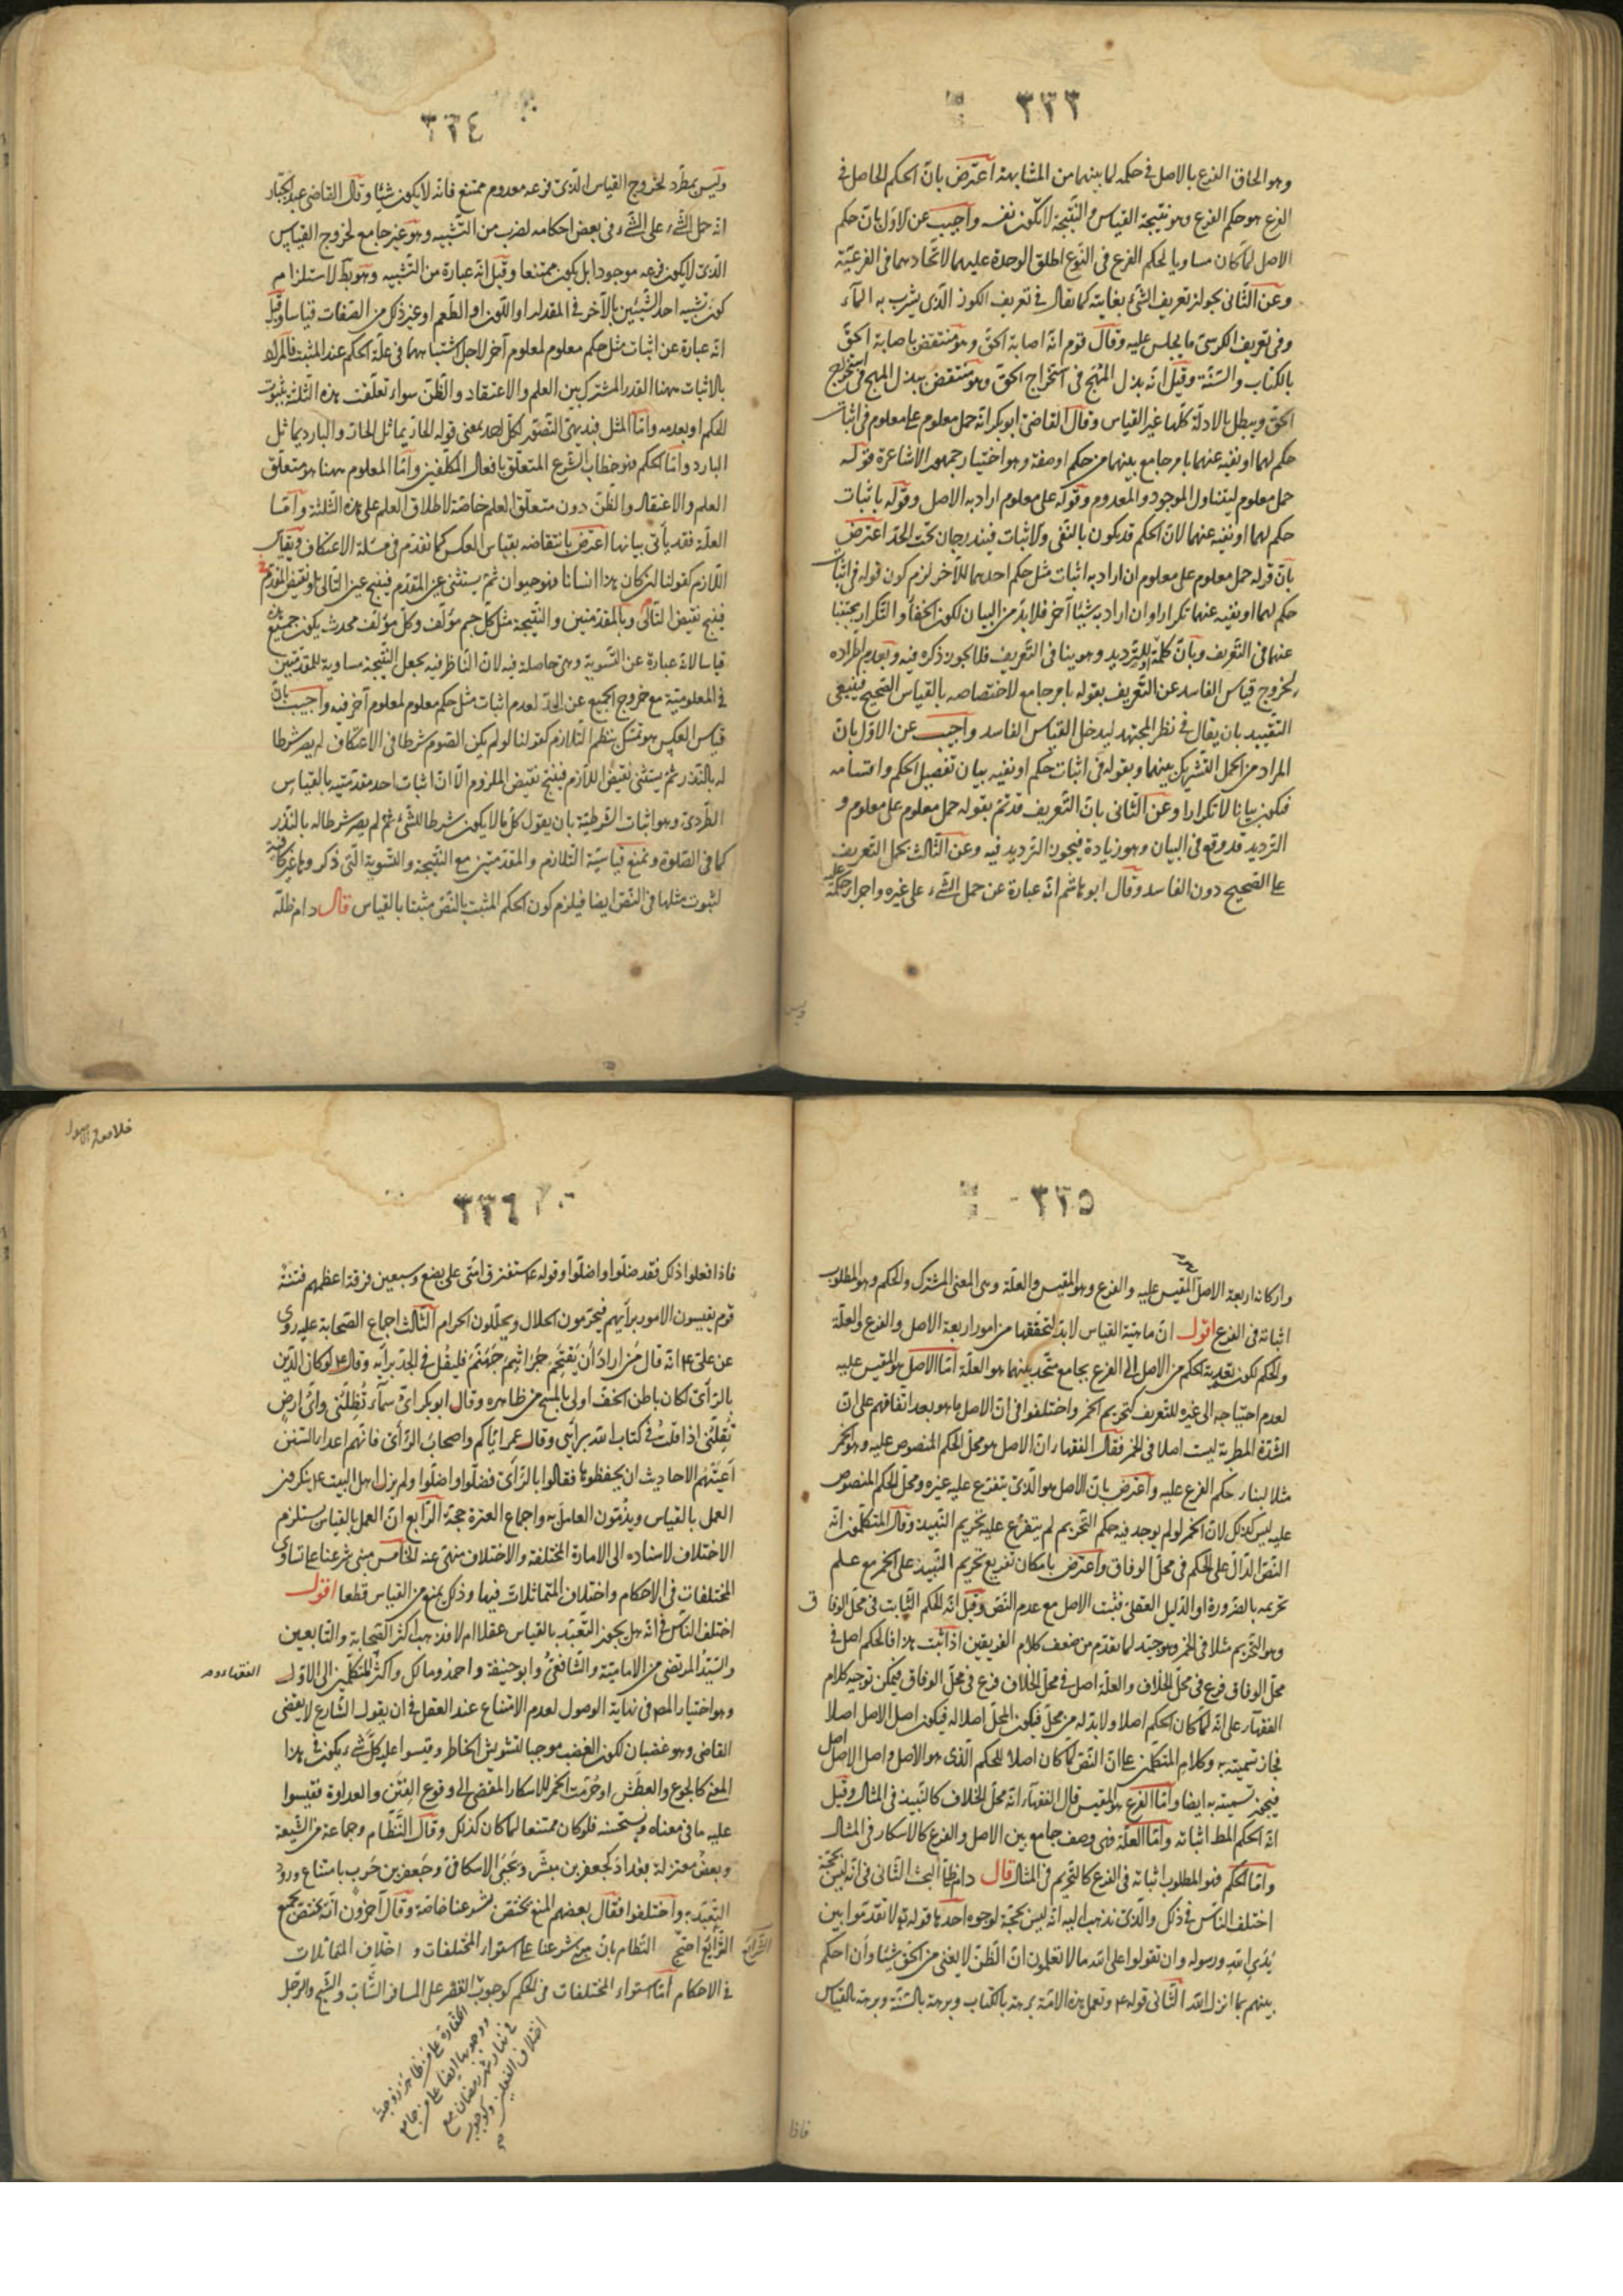 ٣٣٣
وهو الحاق الفرع بالاصل فى حكمه لما بينهما من المشابهة اعترض بان الحكم الحاصل فى
الفرع هو حكم الفرع وهو نتيجة القياس والنتيجة لا تكون نفسه واجيب عن الاول بان حكم
الاصل لما كان مساويا لحكم الفرع فى النوع اطلق الوحدة عليهما لاتحادهما فى الفرعية
وعن الثانى بجواز تعريف الشئ بغايته كما يقال فى تعريف الكوز الذى يشرب به المآء
وفى تعريف الكرسى ما يجلس عليه وقال قوم انه اصابة الحق وهو منتقض باصابة الحق
بالكتاب والسنة وقيل انه بذل الجهد فى استخراج الحق وهو منتقض ببذل الجهد فى استخراج
الحق ويبطل بالادلة كلها غير القياس وقال القاضى ابو بكر انه حمل معلوم على معلوم فى اثبات
حكم لهما او نفيه عنهما بامر جامع بينهما من حكم او صفة وهو اختيار جمهور الاشاعرة فقوله
حمل معلوم ليتناول الموجود والمعدوم وقوله على معلوم اراد به الاصل وقوله باثبات
حكم لهما او نفيه عنهما لان الحكم قد يكون بالنفى والاثبات فيندرجان تحت الحد اعترض
بان قوله حمل معلوم على معلوم ان اراد به اثبات مثل حكم احدهما للآخر لزم كون قوله فى اثبات
حكم لهما او نفيه عنهما تكرارا وان اراد به شيئا آخر فلا بد من البيان لكون الخفآء والتكرار يجتنبا
عنهما فى التعريف وبان كلمة او للترديد وهو ينافى التعريف فلا يجوز ذكره فيه وبعدم اطراده
لخروج قياس الفاسد عن التعريف بقوله بامر جامع لاختصاصه بالقياس الصحيح فينبغى
التقييد بان يقال فى نظر المجتهد ليدخل القياس الفاسد واجيب عن الاول بان
المراد من الحمل التشريك بينهما وبقوله فى اثبات حكم او نفيه بيان تفصيل الحكم واقسامه
فيكون بيانا لا تكرارا وعن الثانى بان التعريف قد تم بقوله حمل معلوم على معلوم و
الترديد قد وقع فى البيان وهو زيادة فيجوز الترديد فيه وعن الثالث بحمل التعريف
على الصحيح دون الفاسد وقال ابو هاشم انه عبارة عن حمل الشئ على غيره واجراء حكمه عليه
وليس
٣٣٤
وليس بمطرد لخروج القياس الذى فرعه معدوم ممتنع فانه لا يكون شيئا وقال القاضى عبد الجبار
انه حمل الشئ على الشئ فى بعض احكامه لضرب من التشبيه وهو غير جامع لخروج القياس
الذى لا يكون فرعه موجودا بل يكون ممتنعا وقيل انه عبارة من التشبيه وهو بط لاستلزام
كون تشبيه احد الشيئين بالآخر فى المقدار او اللون او الطعم او غير ذلك من الصفات قياسا وقيل
انه عبارة عن اثبات مثل حكم معلوم لمعلوم آخر لاجل اشتباههما فى علة الحكم عند المثبت فالمراد
بالاثبات ههنا القدر المشترك بين العلم والاعتقاد والظن سواء تعلقت هذه الثلثة بثبوت
الحكم او بعدمه واما المثل فبديهى التصور لكل احد بمعنى قوله الحار يماثل الحار والبارد يماثل
البارد واما الحكم فهو خطاب الشرع المتعلق بافعال المكلفين واما المعلوم ههنا هو متعلق
العلم والاعتقاد والظن دون متعلق العلم خاصة لاطلاق العلم على هذه الثلثة واما
العلة فقد يأتى بيانها اعترض بانتقاضه بقياس العكس كما تقدم فى مسئلة الاعتكاف وبقياس
التلازم كقولنا ان كان هذا انسانا فهو حيوان ثم يستثنى عين المقدم فينتج عين التالى او نقيض المقدم
فينتج نقيض التالى وبالمقدمتين والنتيجة مثل كل جسم مؤلف وكل مؤلف محدث يكون جميع هذه
قياسا لانه عبارة عن التسوية وهى حاصلة فيه لان الناظر فيه يجعل النتيجة مساوية للمقدمتين
فى المعلومية مع خروج الجميع عن الحد لعدم اثبات مثل حكم معلوم لمعلوم آخر فيه واجيب بان
قياس العكس هو تمسك بنظم التلازم كقولنا لو لم يكن الصوم شرطا فى الاعتكاف لم يصر شرطا
له بالنذر ثم يستثنى نقيض اللازم فينتج نقيض الملزوم الا ان اثبات احد مقدمتيه بالقياس
الطردى وهو اثبات الشرطية بان يقول كل ما لا يكون شرطا للشئ ثم لم يصر شرطا له بالنذر
كما فى الصلوة ونمنع قياسية التلازم والمقدمتين مع النتيجة والتسوية التى ذكروها غير كافية
لثبوت مثلها فى النص ايضا فيلزم كون الحكم المثبت بالنص مثبتا بالقياس قال دام ظله
٣٣٥
واركانه اربعة الاصل المقيس عليه والفرع وهو المقيس والعلة وهى المعنى المشترك والحكم وهو المطلوب
اثباته فى الفرع اقول ان ماهية القياس لا بد لتحققها من امور اربعة الاصل والفرع والعلة
والحكم لكون تعدية الحكم من الاصل الى الفرع بجامع متحد بينهما هو العلة اما الاصل هو المقيس عليه
لعدم احتياجه الى غيره للتعريف كتحريم الخمر واختلفوا فى ان الاصل ما هو بعد اتفاقهم على ان
الشدة المطربة ليست اصلا فى الخمر فقال الفقهاء ان الاصل هو محل الحكم المنصوص عليه وهو الخمر
مثلا لبناء حكم الفرع عليه واعترض بان الاصل هو الذى يتفرع عليه غيره ومحل الحكم المنصوص
عليه ليس كذلك لان الخمر لو لم يوجد فيه حكم التحريم لم يتفرع عليه تحريم النبيذ وقال المتكلمون انه
النص الدال على الحكم فى محل الوفاق واعترض بامكان تفريع تحريم النبيذ على الخمر مع علم
تحريمه بالضرورة او الدليل العقلى فثبت الاصل مع عدم النص وقيل انه الحكم الثابت فى محل الوفاق
وهو التحريم مثلا فى الخمر وهو جيد لما تقدم من ضعف كلام الفريقين اذا ثبت هذا فالحكم اصل فى
محل الوفاق فرع فى محل الخلاف والعلة اصل فى محل الخلاف فرع فى محل الوفاق فيمكن توجيه كلام
الفقهآء على انه لما كان الحكم اصلا ولا بد له من محل فيكون المحل اصلا له فيكون اصل الاصل اصلا
فجاز تسميته به وكلام المتكلمين على ان النص لما كان اصلا للحكم الذى هو الاصل واصل الاصل اصل
فيجوز تسميته به ايضا واما الفرع هو المقيس قال الفقهآء انه محل الخلاف كالنبيذ فى المثال وقيل
انه الحكم المط اثباته واما العلة فهى وصف جامع بين الاصل والفرع كالاسكار فى المثال
واما الحكم فهو المطلوب اثباته فى الفرع كالتحريم فى المثال قال دام ظله البحث الثانى فى انه ليس بحجة
اختلف الناس فى ذلك والذى نذهب اليه انه ليس بحجة لوجوه احدها قوله تع لا تقدموا بين
يدى الله ورسوله وان تقولوا على الله ما لا تعلمون ان الظن لا يغنى من الحق شيئا وان احكم
بينهم بما انزل الله الثانى قوله ع وتعمل هذه الامة برهة بالكتاب وبرهة بالسنة وبرهة بالقياس
فاذا
خلاصة الاصول
٣٣٦
فاذا فعلوا ذلك فقد ضلوا واضلوا وقوله ع ستفترق امتى على بضع وسبعين فرقة اعظمهم فتنة
قوم يقيسون الامور برأيهم فيحرمون الحلال ويحللون الحرام الثالث اجماع الصحابة عليه روى
عن على ع انه قال من اراد ان يقتحم جراثيم جهنم فليقل فى الجد برأيه وقال ع لو كان الدين
بالرأى لكان باطن الخف اولى بالمسح من ظاهره وقال ابو بكر اى سمآء تظلنى واى ارض
تقلنى اذا قلت فى كتاب الله برأيى وقال عمر اياكم واصحاب الرأى فانهم اعداء السنن
اعيتهم الاحاديث ان يحفظوها فقالوا بالرأى فضلوا واضلوا ولم يزل اهل البيت ع ينكرون
العمل بالقياس ويذمون العامل به واجماع العترة حجة الرابع ان العمل بالقياس يستلزم
الاختلاف لاستناده الى الامارة المختلفة والاختلاف منهى عنه الخامس مبنى شرعنا على تساوى
المختلفات فى الاحكام واختلاف المتماثلات فيها وذلك يمنع من القياس قطعا اقول
اختلف الناس فى انه هل يجوز التعبد بالقياس عقلا ام لا فذهب اكثر الصحابة والتابعين
والسيد المرتضى من الامامية والشافعى وابو حنيفة واحمد ومالك واكثر المتكلمين الى الاول
الفقهاء و
وهو اختيار المص فى نهاية الوصول لعدم الامتناع عند العقل فى ان يقول الشارع لا يقضى
القاضى وهو غضبان لكون الغضب موجبا لتشويش الخاطر وقيسوا عليه كل شئ يكون فى هذا
المعنى كالجوع والعطش او حرمت الخمر للاسكار المفضى الى وقوع الفتن والعداوة فقيسوا
عليه ما فى معناه ويستحسنه فلو كان ممتنعا لما كان كذلك وقال النظام وجماعة من الشيعة
وبعض معتزلة بغداد كجعفر بن مبشر ويحيى الاسكافى وجعفر بن حرب بامتناع ورود
التعبد به واختلفوا فقال بعضهم المنع يختص بشرعنا خاصة وقال آخرون انه يختص بجميع
الشرائع
الشرائع احتج النظام بان مبنى شرعنا على استواء المختلفات و اختلاف المتماثلات
فى الاحكام اما استواء المختلفات فى الحكم كوجوب القصر على المسافر الشاب والشيخ والرجل
الكفارة على من ظاهر زوجته
ووجوبها ايضا على من جامع
فى نهار شهر رمضان مع
اختلاف الفعلين وكوجوب